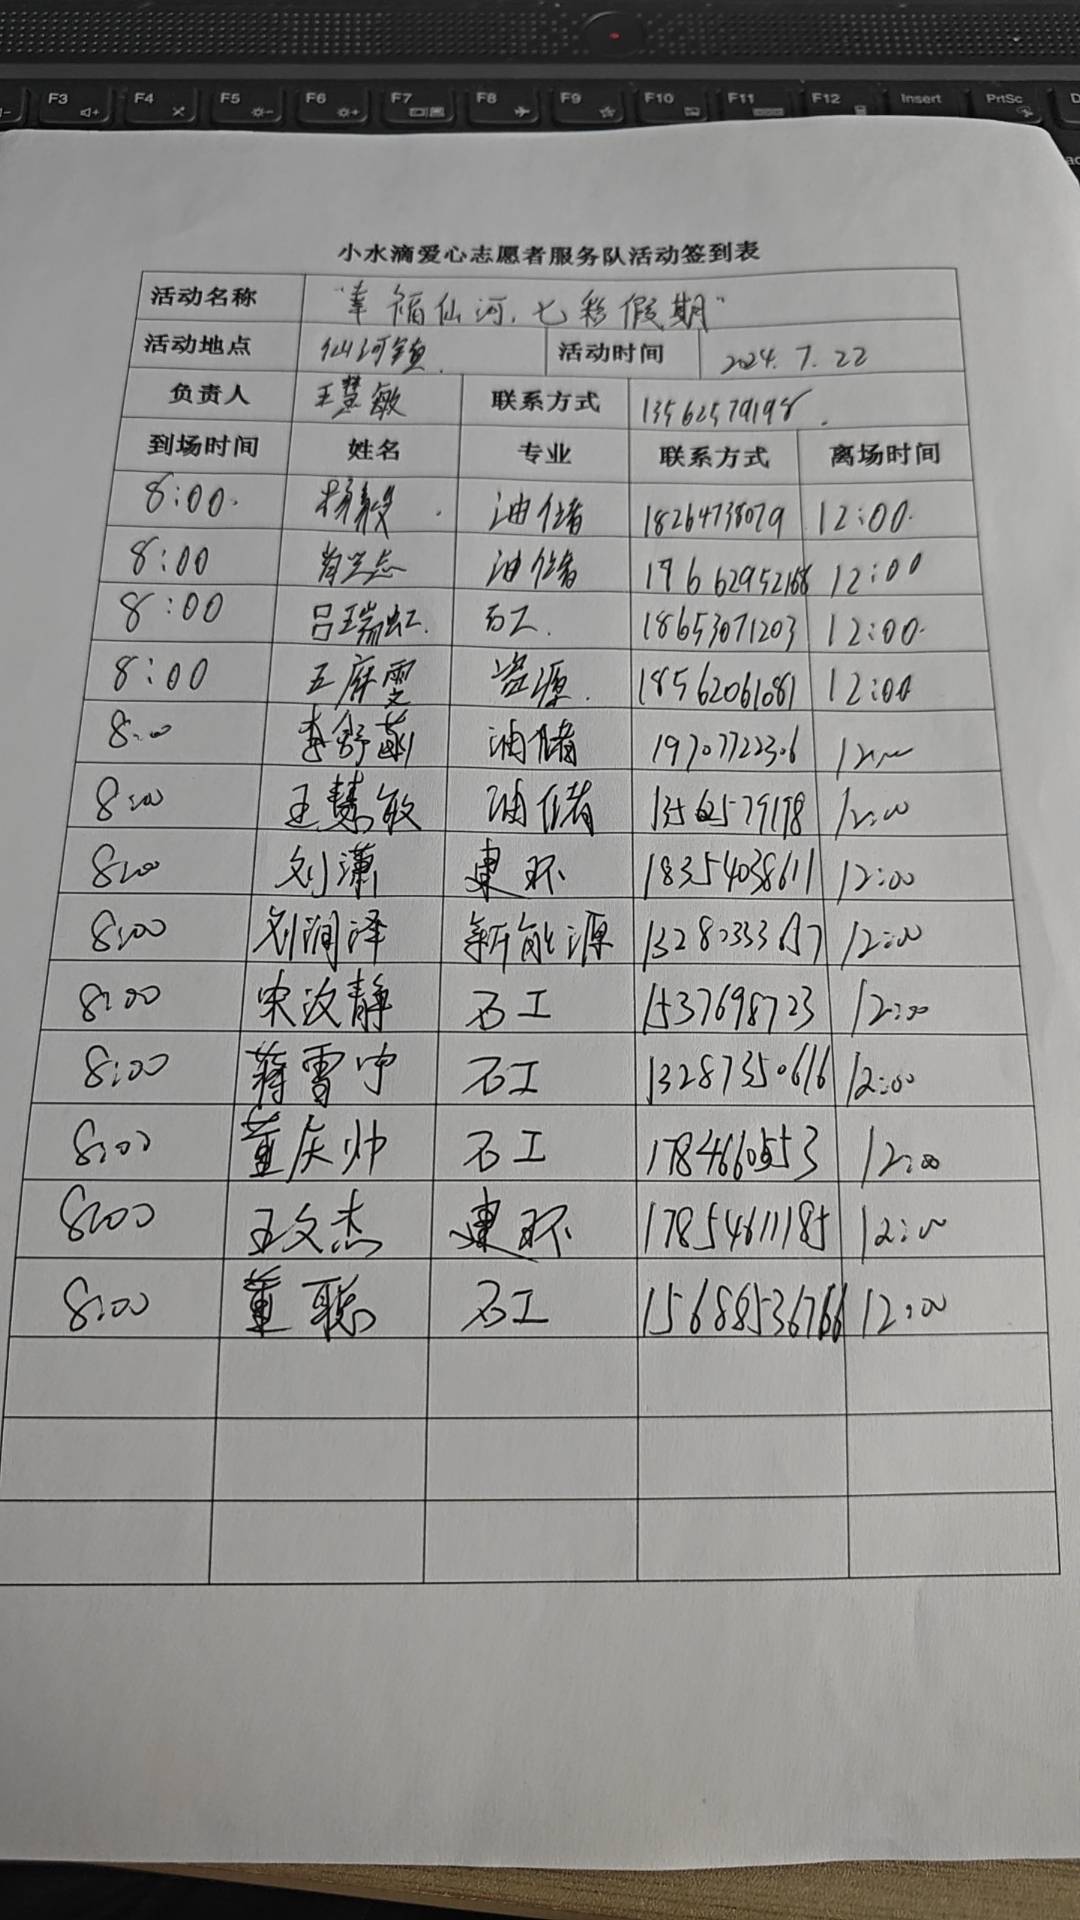 F3 F4 F5 F6 F7 F8 F9 F10 F11 F12 Insert PrtSc
小水滴爱心志愿者服务队活动签到表
活动名称 "幸福仙河,七彩假期"
活动地点 仙河镇. 活动时间 2024.7.22
负责人 王慧敏 联系方式 13562579198.
到场时间 姓名 专业 联系方式 离场时间
8:00. 油储 18264738079 12:00.
8:00 油储 19662952168 12:00
8:00 吕瑞虹. 石工. 18653071203 12:00.
8:00 资源. 18562061081 12:00
8:00 油储 19707722306 12:00
8:00 王慧敏 油储 13562579198 12:00
8:00 刘潇 建环 18354038611 12:00
8:00 刘润泽 新能源 12:00
8:00 宋汝静 石工 1537698723 12:00
8:00 蒋雪中 石工 13287350616 12:00
8:00 董庆帅 石工 12:00
8:00 王文杰 建环 17854611185 12:00
8:00 董聪 石工 15688536766 12:00